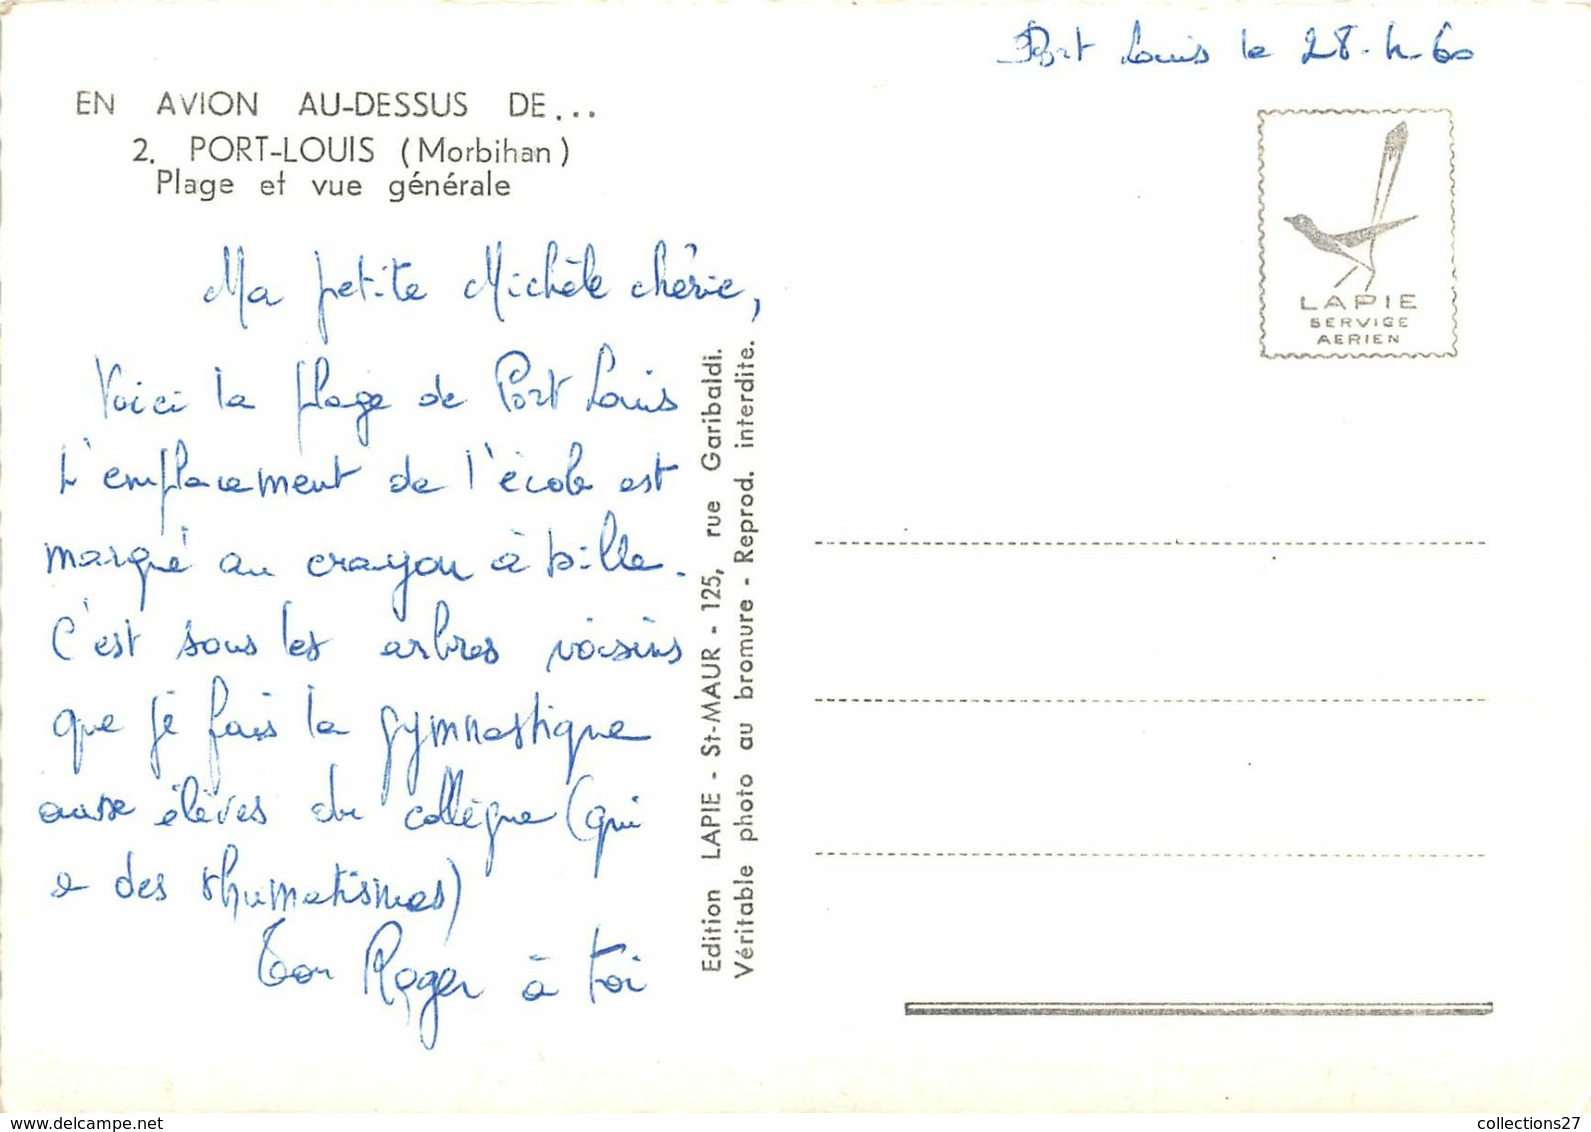 Port Louis le 28-4-60
EN AVION AU-DESSUS DE...
2. PORT-LOUIS (Morbihan)
Plage et vue générale
LAPIE
SERVICE
AERIEN
Ma petite Michèle chérie,
Voici la plage de Port Louis
L'emplacement de l'école est
marqué au crayon à bille.
C'est sous les arbres voisins
que je fais la gymnastique
aux élèves du collègue (qui
a des rhumatismes)
Ton Roger à toi
Edition LAPIE - St-MAUR - 125, rue Garibaldi.
Véritable photo au bromure - Reprod. interdite.
delcampe.net
collections27